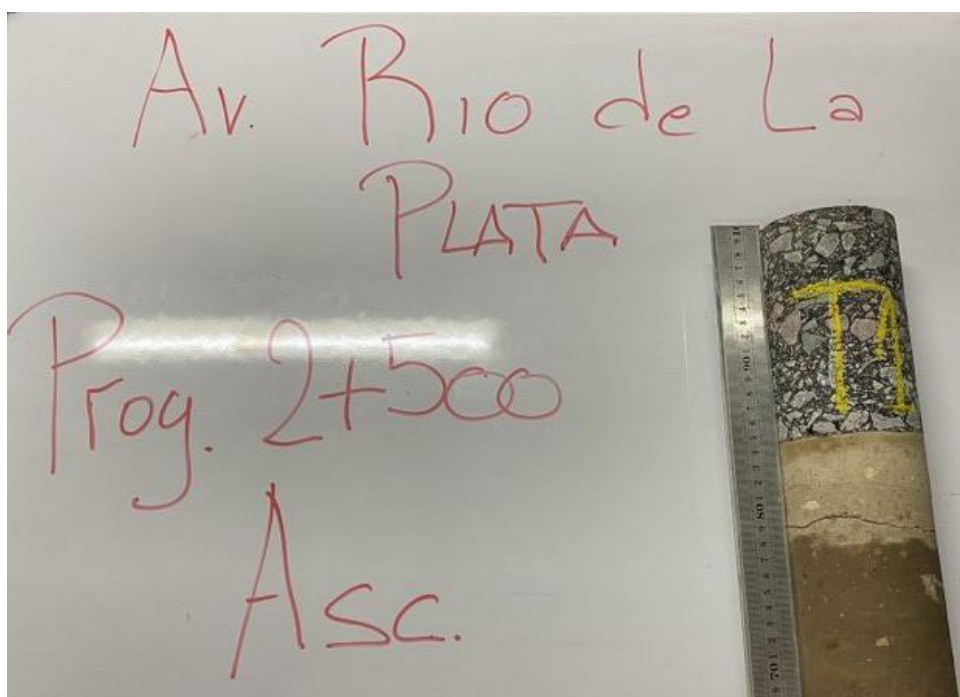 Av. Rio de La
PLATA
Prog. 2+500
Asc.
T1